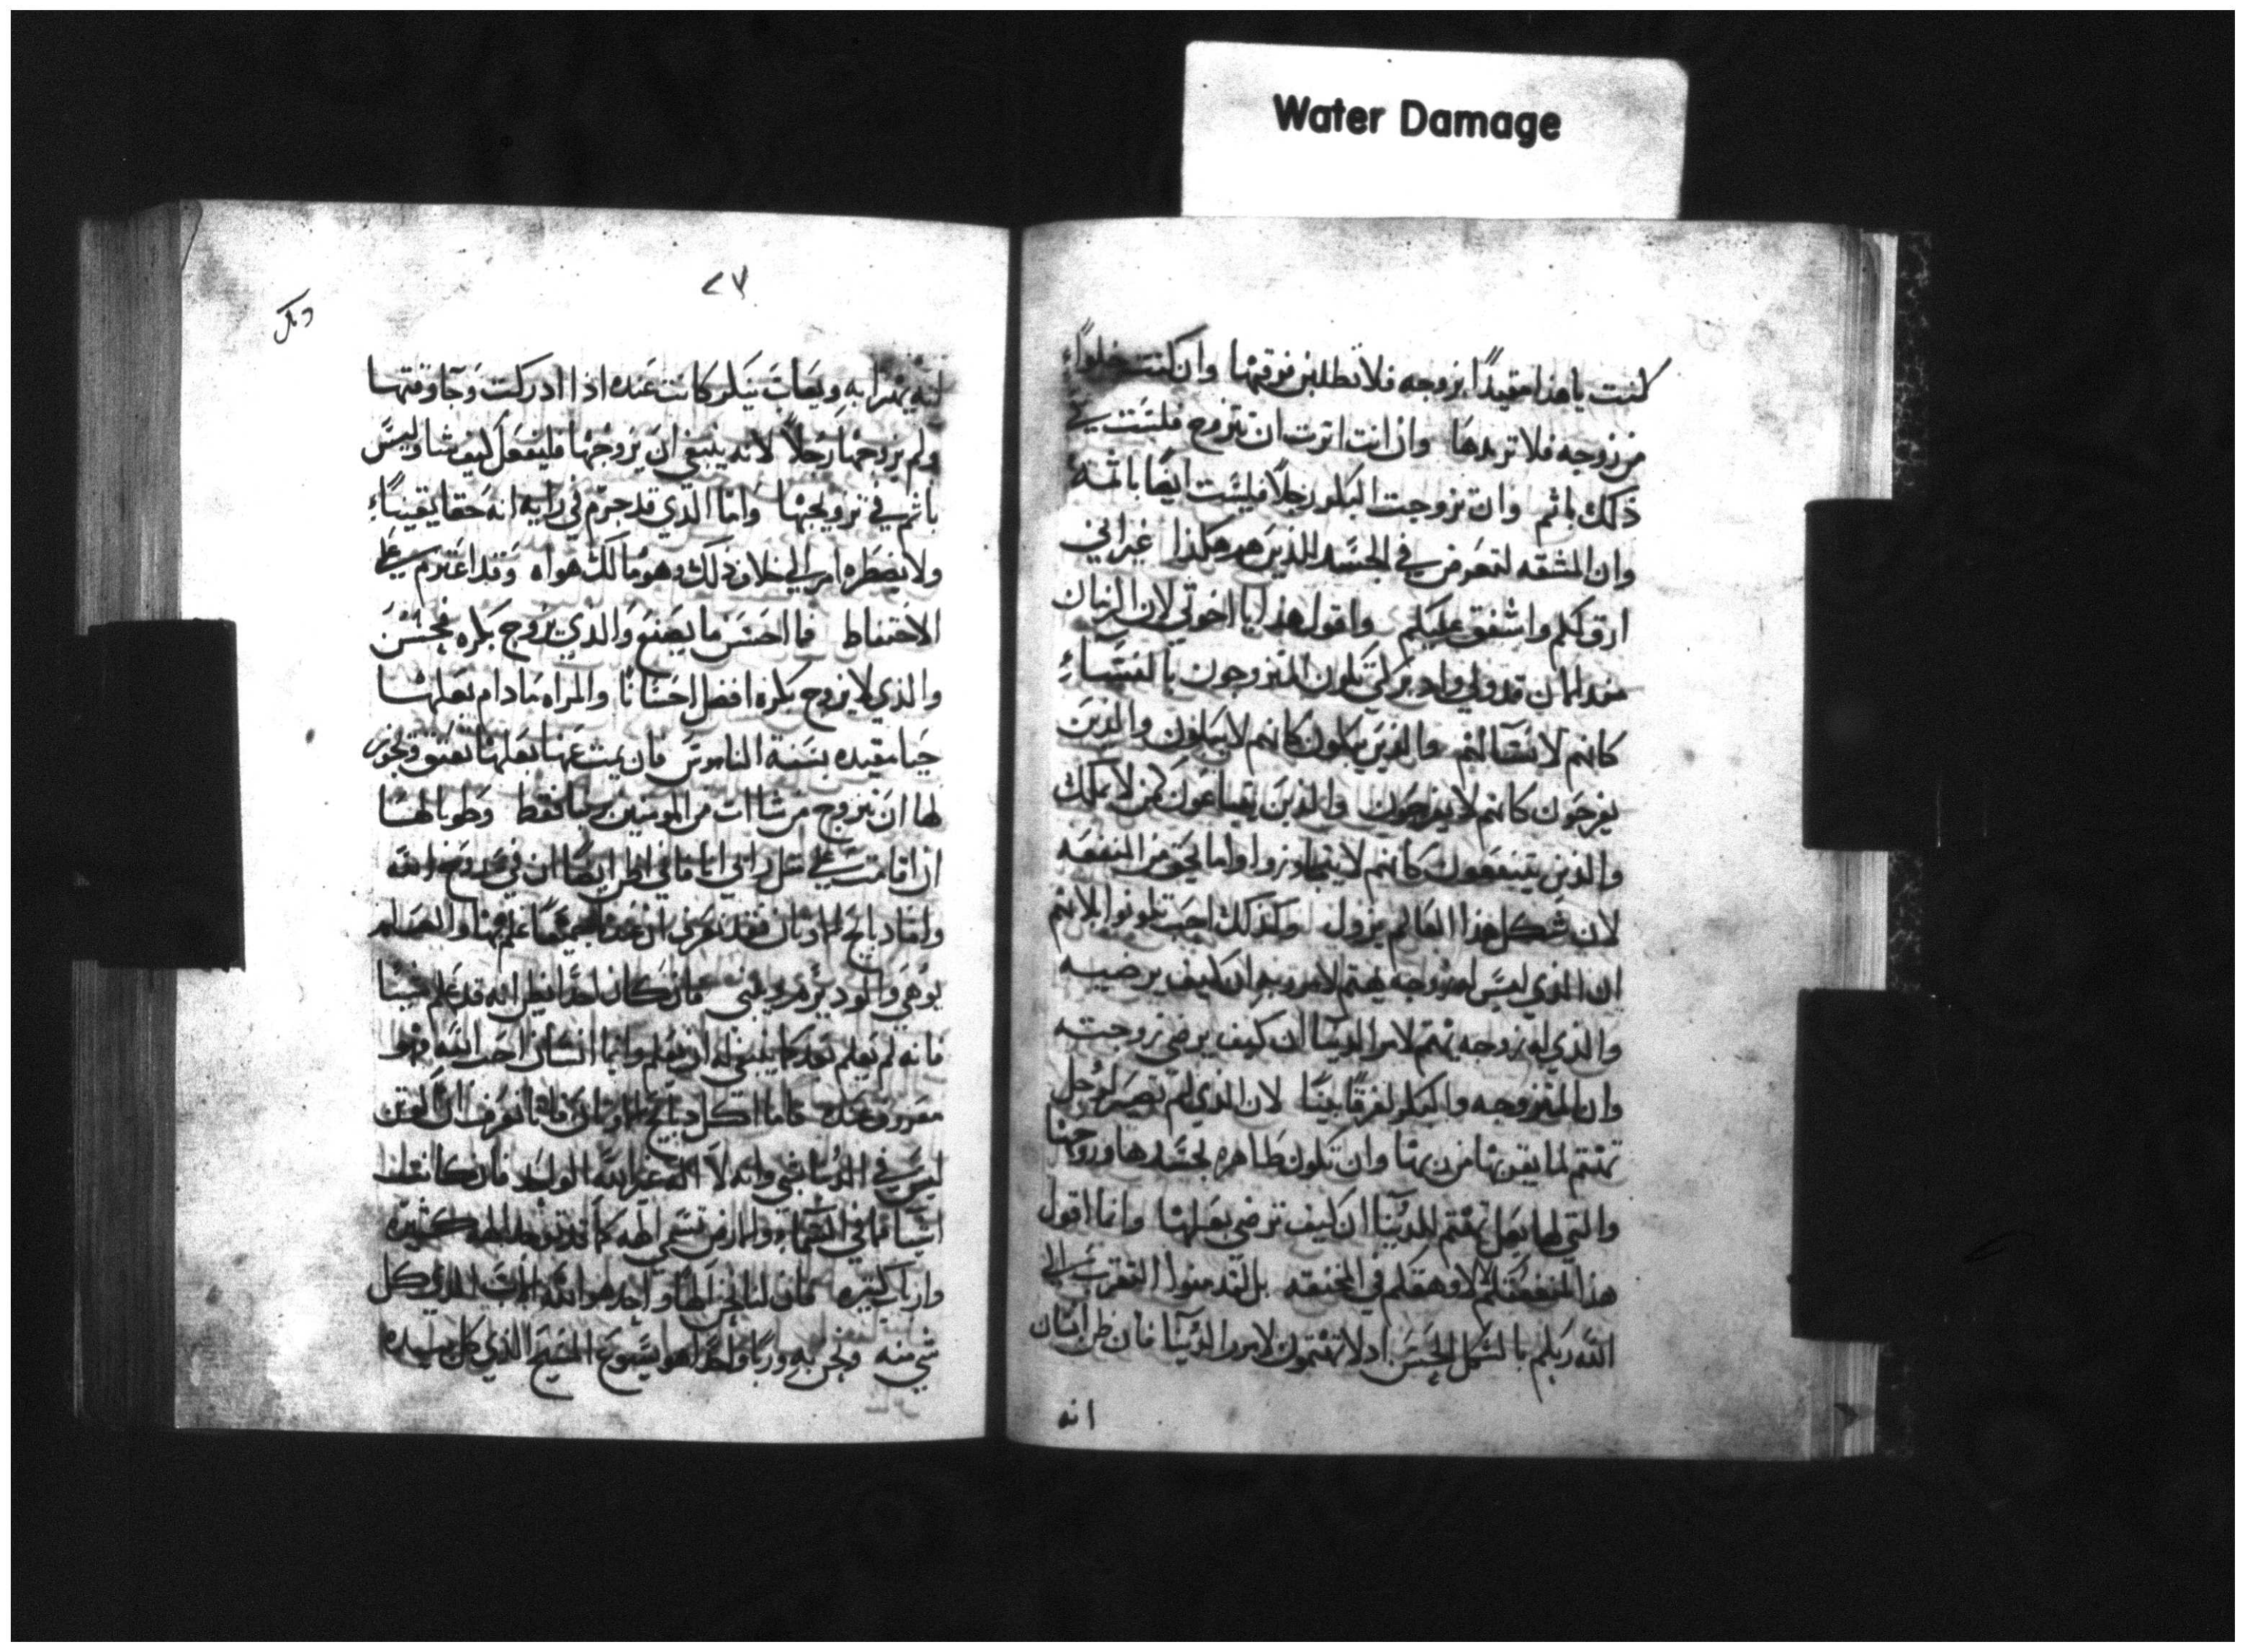 Water Damage
كنت يا هذا مقيدًا بزوجه فلا تطلبن فرقتها وان كنت خلوًا
من زوجه فلا تريدها وان انت اثرت ان تتزوج فلست في
ذلك باثم وان تزوجت البكر رجلًا فليست ايضًا باثمه
وان المشقه لتعرض في الجسد للذين هم هكذا غير اني
ارق لكم واشفق عليكم واقول هذا يا اخوتي لان الزمان
منذ الان قد ولي وادبر لكي يكون المتزوجون بالنساء
كانهم لا نسا لهم والذين يبكون كانهم لا يبكون والذين
يفرحون كانهم لا يفرحون والذين يبتاعون كمن لا يملك
والذين ينتفعون كانهم لا يتجاوزوا واما يحق من المنفعه
لان شكل هذا العالم يزول ولذلك احب تكونوا بلا هم
ان الذي ليس له زوجه يهتم لامر ربه ان كيف يرضيه
والذي له زوجه يهتم لامر الدنيا ان كيف يرضي زوجته
وان المتزوجه والبكر لفرقًا بينًا لان الذي لم تصر لرجل
تهتم لما يقربها من ربها وان تكون طاهره بجسدها وروحها
والتي لها بعل تهتم للدنيا ان كيف ترضي بعلها وانما اقول
هذا لمنفعتكم لا وهقكم في المخنقه بل لتدمنوا التقرب الي
الله ربكم بالشكل الحسن اد لا تهتمون لامور الدنيا فان ظن انسان
انه
٢٧
انه يهزا به ويعاب ببكر كانت عنده اذا ادركت وجا وقتها
ولم يزوجها رجلًا لانه ينبغي ان يزوجها فليفعل كيف شا وليس
باثم في تزويجها واما الذي قد جزم في رايه انه حقا يقينًا
ولا يضطره امر الي خلاف ذلك وهو مالك هواه وقد اعتزم علي
الاحتفاظ فما احسن ما يصنع والذي يزوج بكره فحسن
والذي لا يزوج بكره افضل احسانًا والمراه ما دام بعلها
حيا مقيده بسنة الناموس فان يمت عنها بعلها تعتق ويجوز
لها ان تتزوج من شاات من المومنين ربنا فقط وطوبا لها
ان اقامت علي مثل راي انا فاني اظن ايضًا ان في روح الله
واما دبايح الاوثان فقد نعرف ان عند جميعنا علم بها والعلم
يوهي والود يزهر ويبني فان كان احدًا يظن انه قد علم شيئًا
فانه لم يعلم بعد كما ينبغي له ان يعلم وايما انسان احب الله فهو
معروف عنده فاما اكل دبايح الاوثان فانا نعرف ان الوثن
ليس في الدنيا شي وانه لا اله غير الله الواحد فان كانت
اشيا ما في السما والارض تسمي الهه كما قد توجد الهه كثيره
وارباب كثيره فان لنا نحن الهًا واحد هو الله الاب الذي كل
شي منه ونحن به وربًا واحدًا هو يسوع المسيح الذي كل بيده